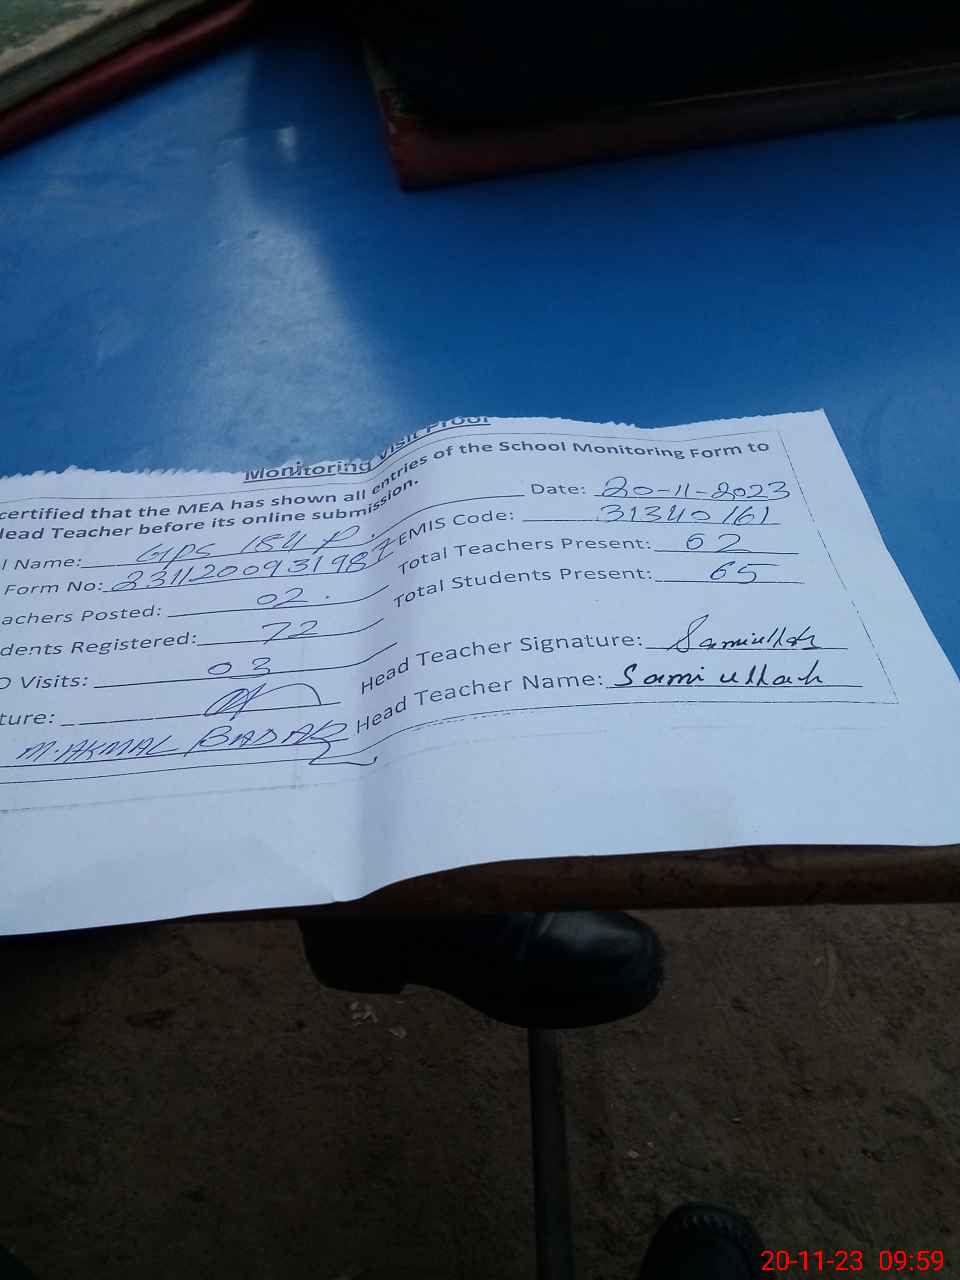 Monitoring Visit Proof
certified that the MEA has shown all entries of the School Monitoring Form to
lead Teacher before its online submission.
l Name: GPS 154 P. Date: 20-11-2023
Form No: EMIS Code: 31340161
achers Posted: 02. Total Teachers Present: 02
dents Registered: 72 Total Students Present: 65
O Visits: 03
ture: Head Teacher Signature: Samiullah
M. AKMAL Head Teacher Name: Samiullah
20-11-23 09:59